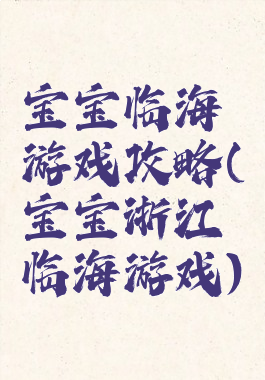 宝宝临海
游戏攻略(
宝宝浙江
临海游戏)